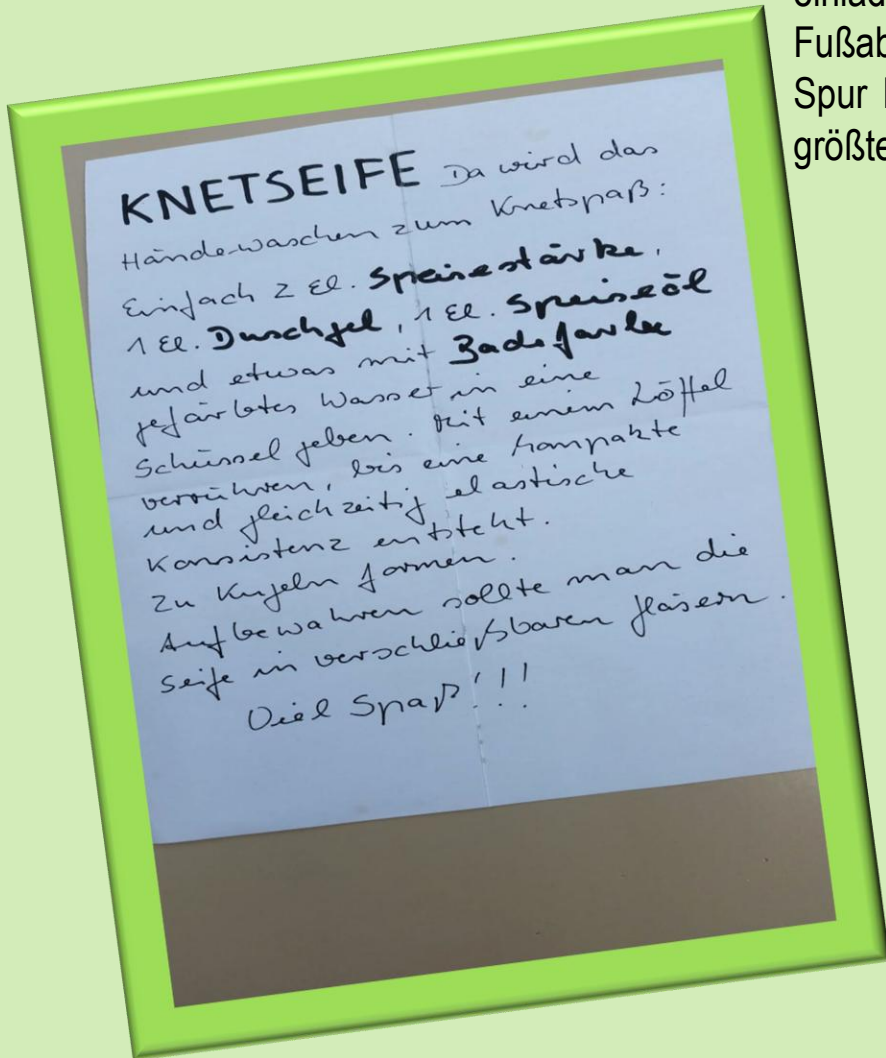 KNETSEIFE Da wird das
Händewaschen zum Knetspaß:
Einfach 2 El. Speisestärke,
1 El. Duschgel, 1 El. Speiseöl
und etwas mit Badefarbe
gefärbtes Wasser in eine
Schüssel geben. Mit einem Löffel
verrühren, bis eine kompakte
und gleichzeitig elastische
Konsistenz entsteht.
Zu Kugeln formen.
Aufbewahren sollte man die
Seife in verschließbaren Gläsern.
Viel Spaß!!!
Spur
größte